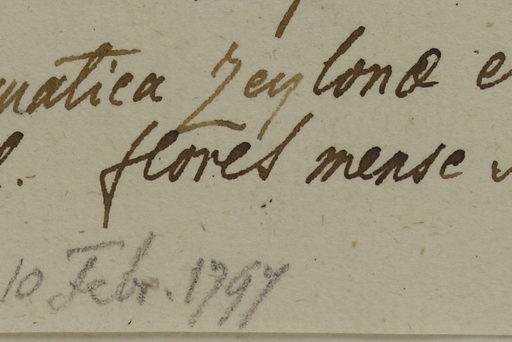 matica Zeylonæ e
l. flores mense
10 Febr. 1797